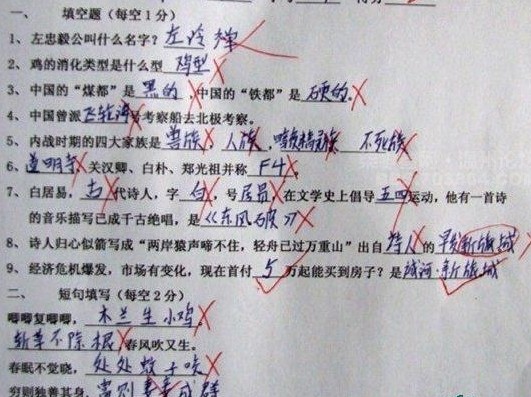 一、 填空题（每空1分）
1、左忠毅公叫什么名字？左冷禅
2、鸡的消化类型是什么型 鸡型
3、中国的“煤都”是 黑的 ，中国的“铁都”是 硬的。
4、中国曾派 飞轮海 号考察船去北极考察。
5、内战时期的四大家族是 兽族、人族、暗夜精灵族 不死族
6、道明寺、关汉卿、白朴、郑光祖并称 F4。
7、白居易，古 代诗人，字 白，号 居易，在文学史上倡导 五四 运动，他有一首诗
的音乐描写已成千古绝唱，是《东风破》
8、诗人归心似箭写成“两岸猿声啼不住，轻舟已过万重山”出自 诗人 的 早发新旅城
9、经济危机爆发，市场有变化，现在首付 5 万起能买到房子？是 域河·新旅城
二、 短句填写（每空2分）
唧唧复唧唧，木兰生小鸡。
斩草不除根，春风吹又生。
春眠不觉晓，处处蚊子咬
穷则独善其身，富则妻妾成群